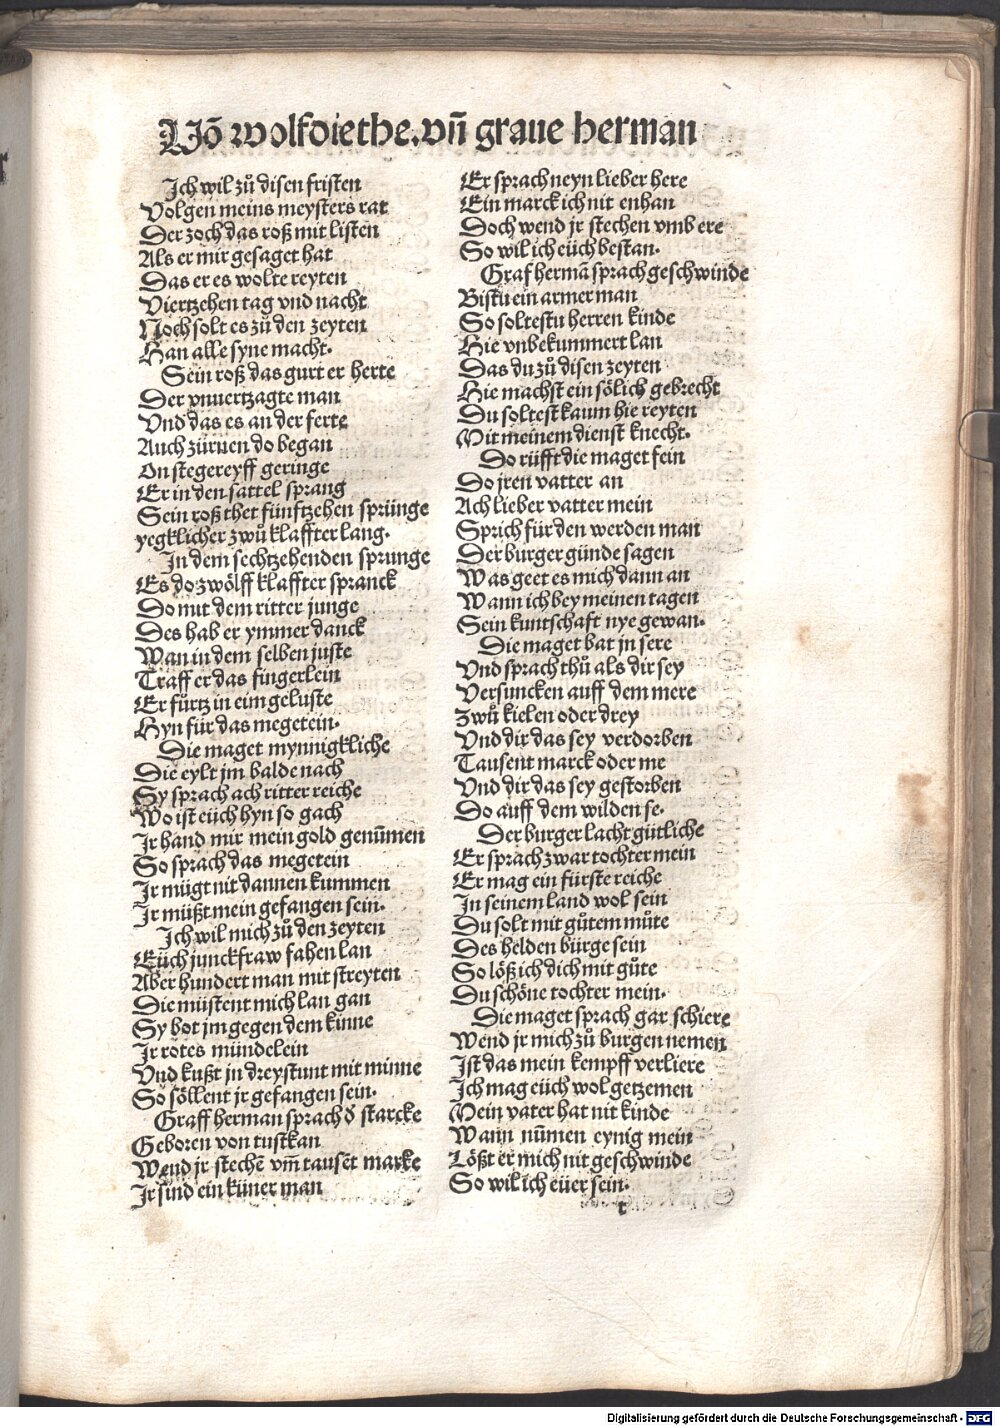 Uō wolfdiethe. vñ graue herman
Ich wil zů disen fristen
Volgen meins meysters rat
Der zoch das roß mit listen
Als er mir gesaget hat
Das er es wolte reyten
Viertzehen tag vnd nacht
Noch solt es zů den zeyten
Han alle syne macht.
Sein roß das gurt er herte
Der vnuertzagte man
Vnd das es an der ferte
Auch zürnen do began
On stegereyff geringe
Er in den sattel sprang
Sein roß thet fünftzehen sprünge
yegklicher zwů klaffter lang.
In dem sechtzehenden sprunge
Es do zwölff klaffter spranck
Do mit dem ritter junge
Des hab er ymmer danck
Wan in dem selben juste
Traff er das fingerlein
Er fürtz in eim geluste
Hyn für das megetein.
Die maget mynnigkliche
Die eylt jm balde nach
Sy sprach ach ritter reiche
Wo ist eüch hyn so gach
Ir hand mir mein gold genūmen
So sprach das megetein
Ir mügt nit dannen kummen
Ir müßt mein gefangen sein.
Ich wil mich zů den zeyten
Eüch junckfraw fahen lan
Aber hundert man mit streyten
Die müstent mich lan gan
Sy bot jm gegen dem kinne
Ir rotes mündelein
Vnd kußt jn dreystunt mit minne
So söllent jr gefangen sein.
Graff herman sprach d̕ starcke
Geboren von tustkan
Wend jr stechē vm̄ tausēt marke
Ir sind ein küner man
Er sprach neyn lieber here
Ein marck ich nit enhan
Doch wend jr stechen vmb ere
So wil ich eüch bestan.
Graf hermā sprach geschwinde
Bistu ein armer man
So soltestu herren kinde
Hie vnbekummert lan
Das du zů disen zeyten
Hie machst ein sölich gebrecht
Du soltest kaum hie reyten
Mit meinem dienst knecht.
Do rüfft die maget fein
Do jren vatter an
Ach lieber vatter mein
Sprich für den werden man
Der burger günde sagen
Was geet es mich dann an
Wann ich bey meinen tagen
Sein kuntschaft nye gewan.
Die maget bat jn sere
Vnd sprach thů als dir sey
Versuncken auff dem mere
Zwů kielen oder drey
Vnd dir das sey verdorben
Tausent marck oder me
Vnd dir das sey gestorben
Do auff dem wilden se.
Der burger lacht gütliche
Er sprach zwar tochter mein
Er mag ein fürste reiche
In seinem land wol sein
Du solt mit gůtem můte
Des helden bürge sein
So löß ich dich mit gůte
Du schöne tochter mein.
Die maget sprach gar schiere
Wend jr mich zů burgen nemen
Ist das mein kempff verliere
Ich mag eüch wol getzemen
Mein vater hat nit kinde
Wann nūmen eynig mein
Lößt er mich nit geschwinde
So wil ich eüer sein.
t
Digitalisierung gefördert durch die Deutsche Forschungsgemeinschaft - DFG